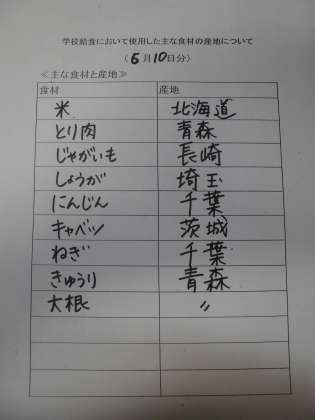 学校給食において使用した主な食材の産地について
(6月10日分)
≪主な食材と産地≫
食材 産地
米 北海道
とり肉 青森
じゃがいも 長崎
しょうが 埼玉
にんじん 千葉
キャベツ 茨城
ねぎ 千葉
きゅうり 青森
大根 〃